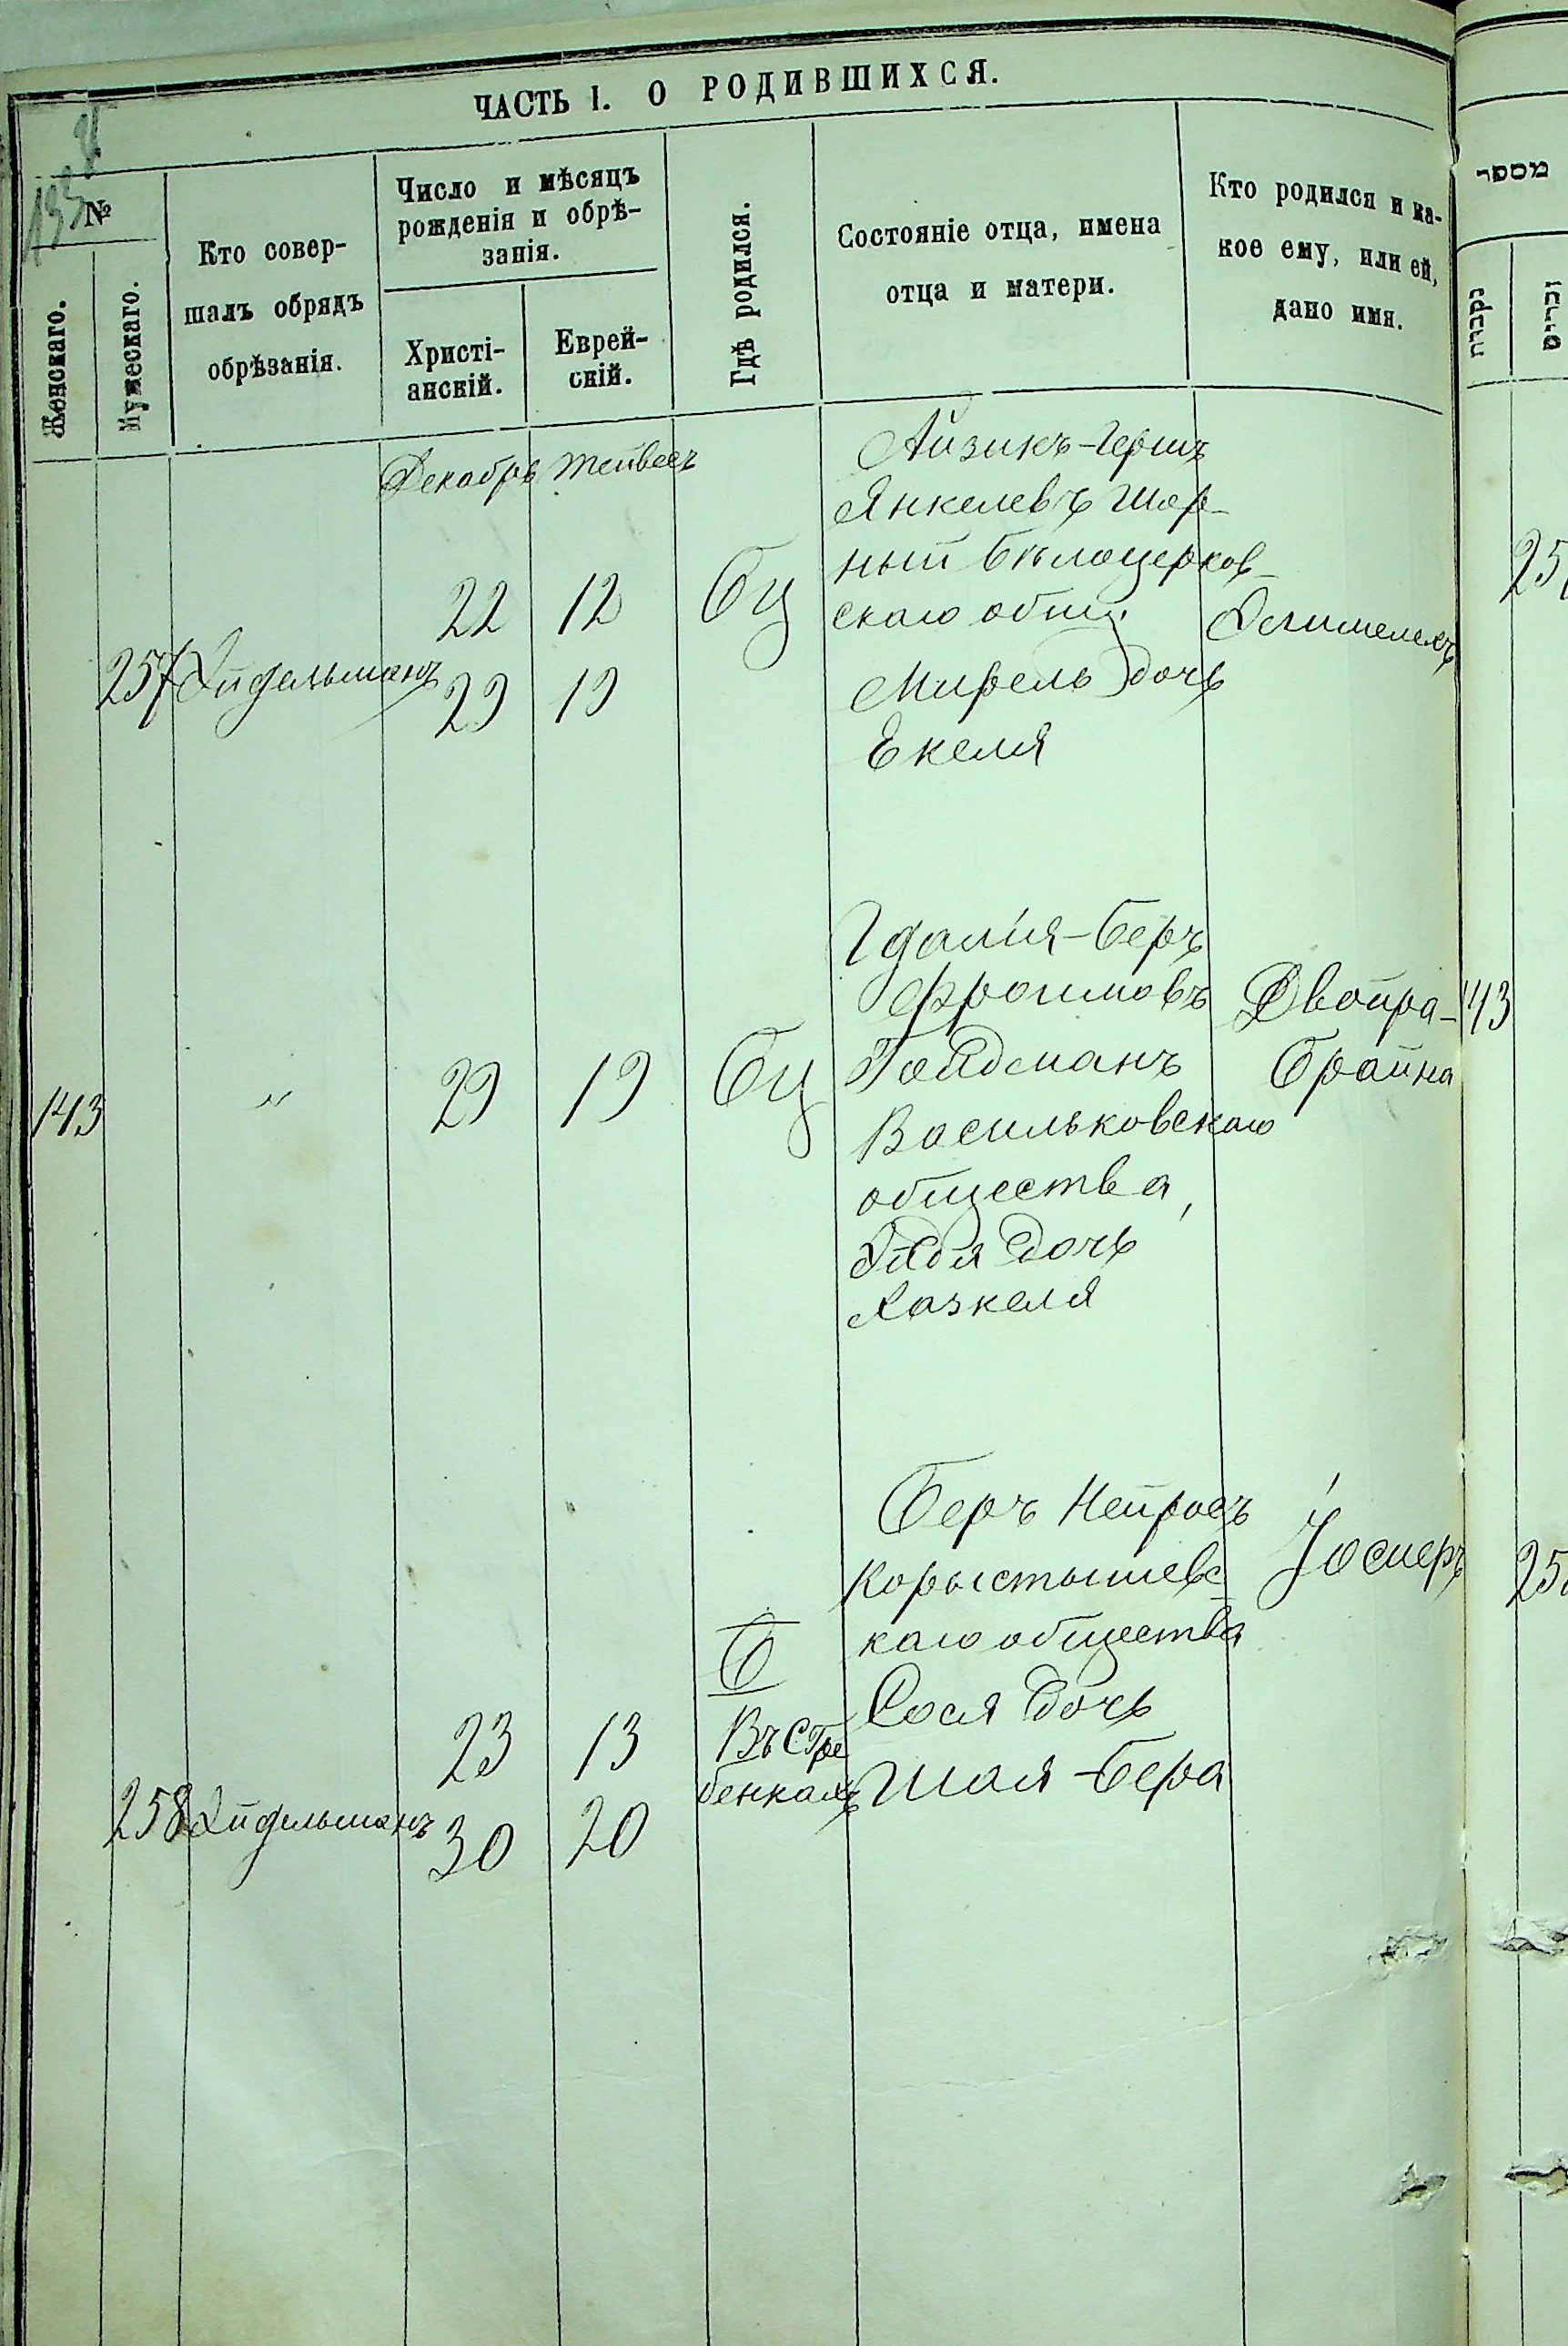 ЧАСТЬ I. О РОДИВШИХСЯ.
№
Женскаго.
Мужескаго.
Кто совер-
шалъ обрядъ
обрѣзанія.
Число и мѣсяцъ
рожденія и обрѣ-
занія.
Христі-
анскій.
Еврей-
скій.
Гдѣ родился.
Состояніе отца, имена
отца и матери.
Кто родился и ка-
кое ему, или ей,
дано имя.
מספר
נקבות
זכרים
Декабрь Тейвесъ
257 Эйдельманъ
22 12 Бц
29 19
Айзикъ-Гершъ
Янкелевъ Шор-
ный Бѣлоцерков-
скаго общ.
Мирель дочь
Екеля
Элимелехъ
143 " 29 19 Бц
Гдалія-Беръ
Фроимовъ
Гойдманъ
Васильковскаго
общества,
дочь
Хаскеля
Двойра-
Брайна
143
258 Эйдельманъ
23 13
30 20
Б
Въ С Гре
бенкахъ
Беръ Нейросъ
Коростышевс
каго общества
Сося дочь
Шая-Бера
Іосиеръ